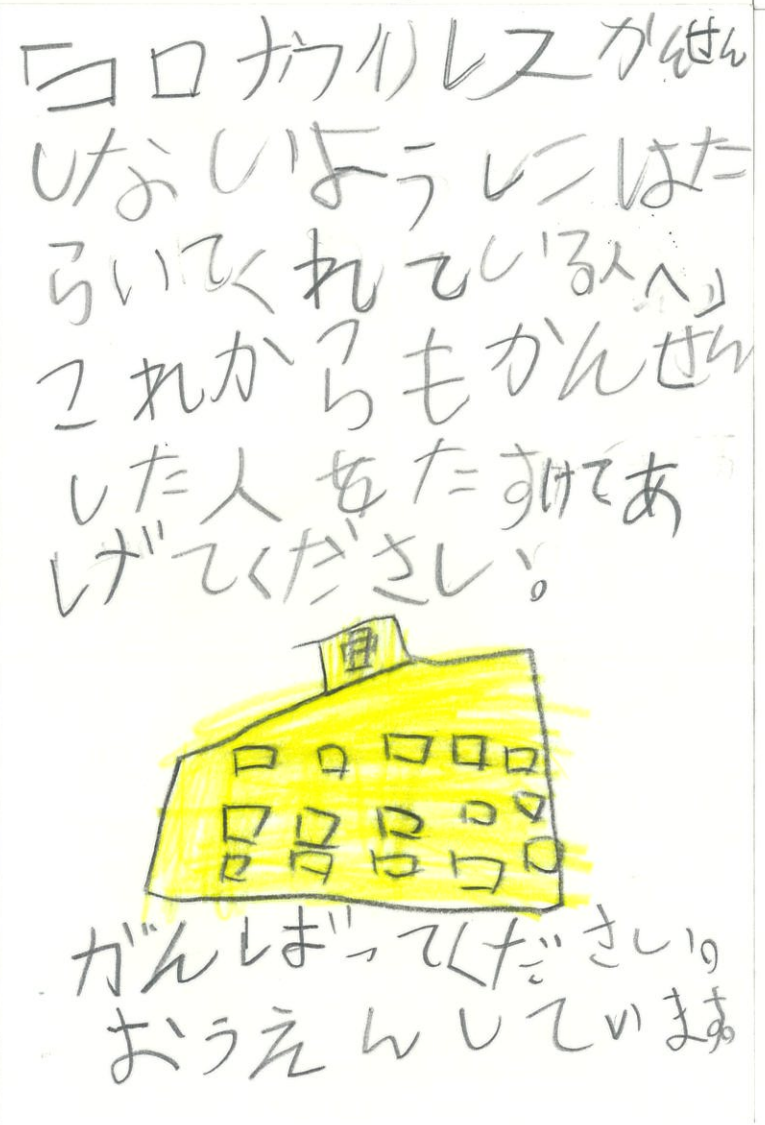 「コロナウイルスかんせん
しないようにはた
らいてくれている人へ」
これからもかんせん
した人をたすけてあ
げてください。
がんばってください。
おうえんしています。